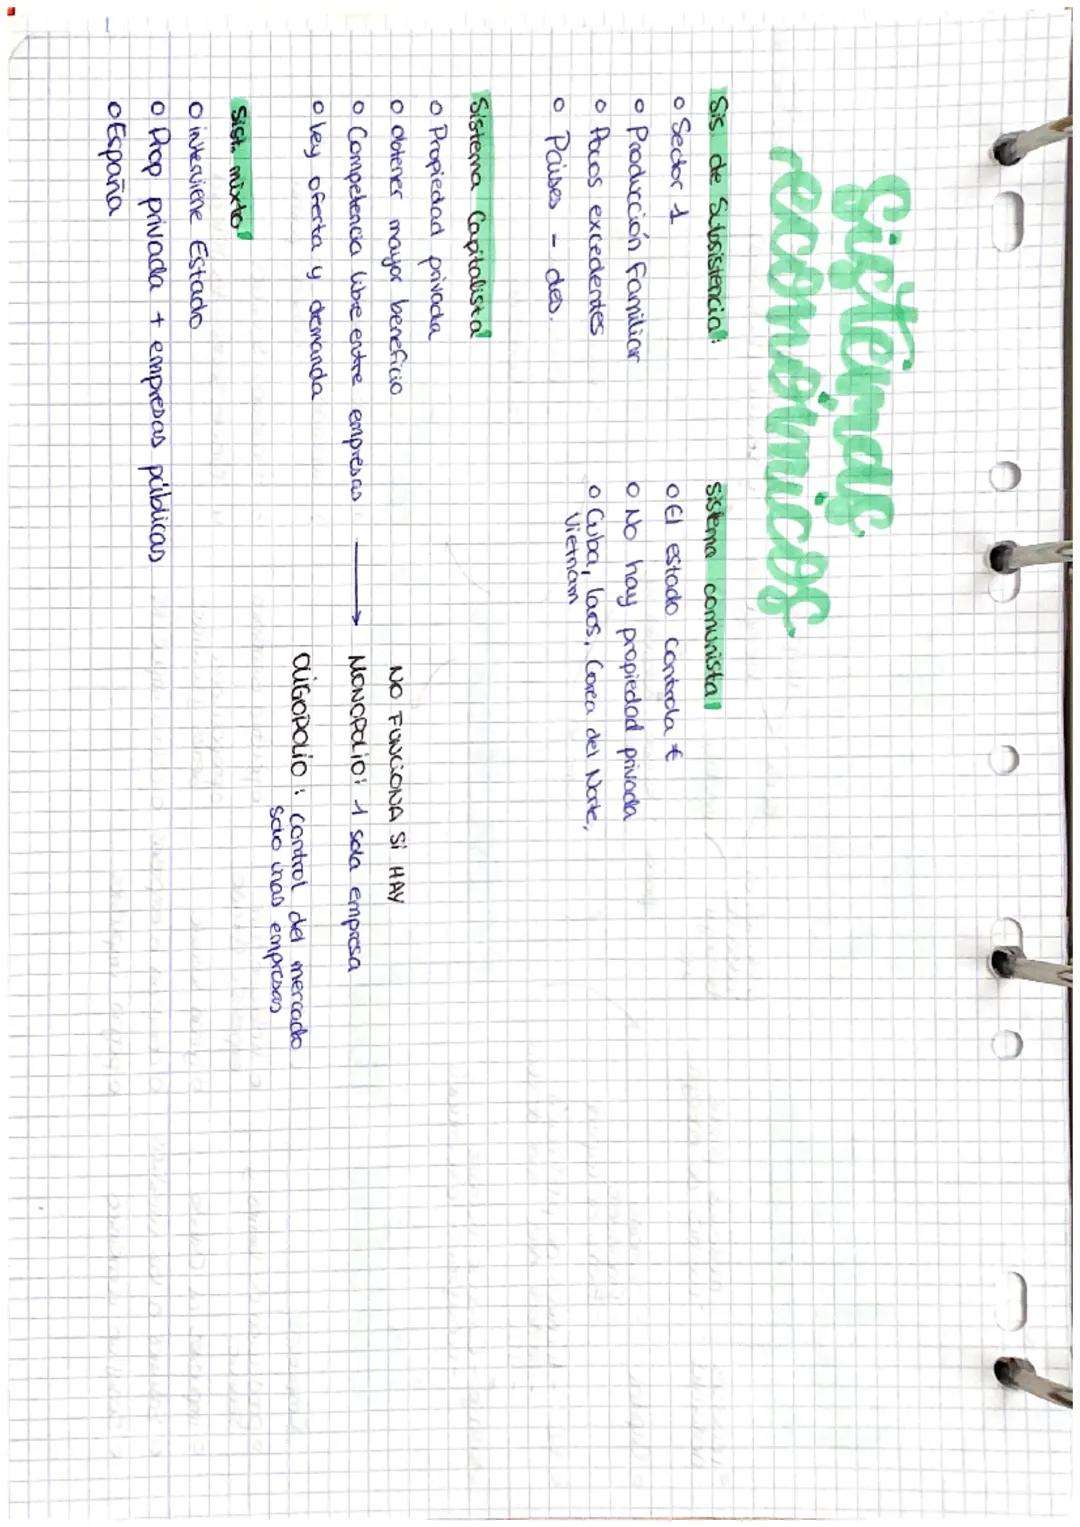 Sistemas
economicos
Sis de Subsistencia:
o Sector 1
o Producción Familiar
o Pocos excedentes
o Países - des.
Sistema comunista
o El estado controla €
o No hay propiedad privada
o Cuba, laos, Corea del Norte,
Vietnam
Sistema Capitalista
o Propiedad privada
o obtener mayor beneficio
o Competencia libre entre empresas →
o ley oferta y demanda
NO FUNCIONA SI HAY
MONOPOLIO: 1 sola empresa
OLIGOPOLIO: control del mercado
solo unas empresas
Sist. mixto
o interviene Estado
o Prop privada + empresas públicas
o España